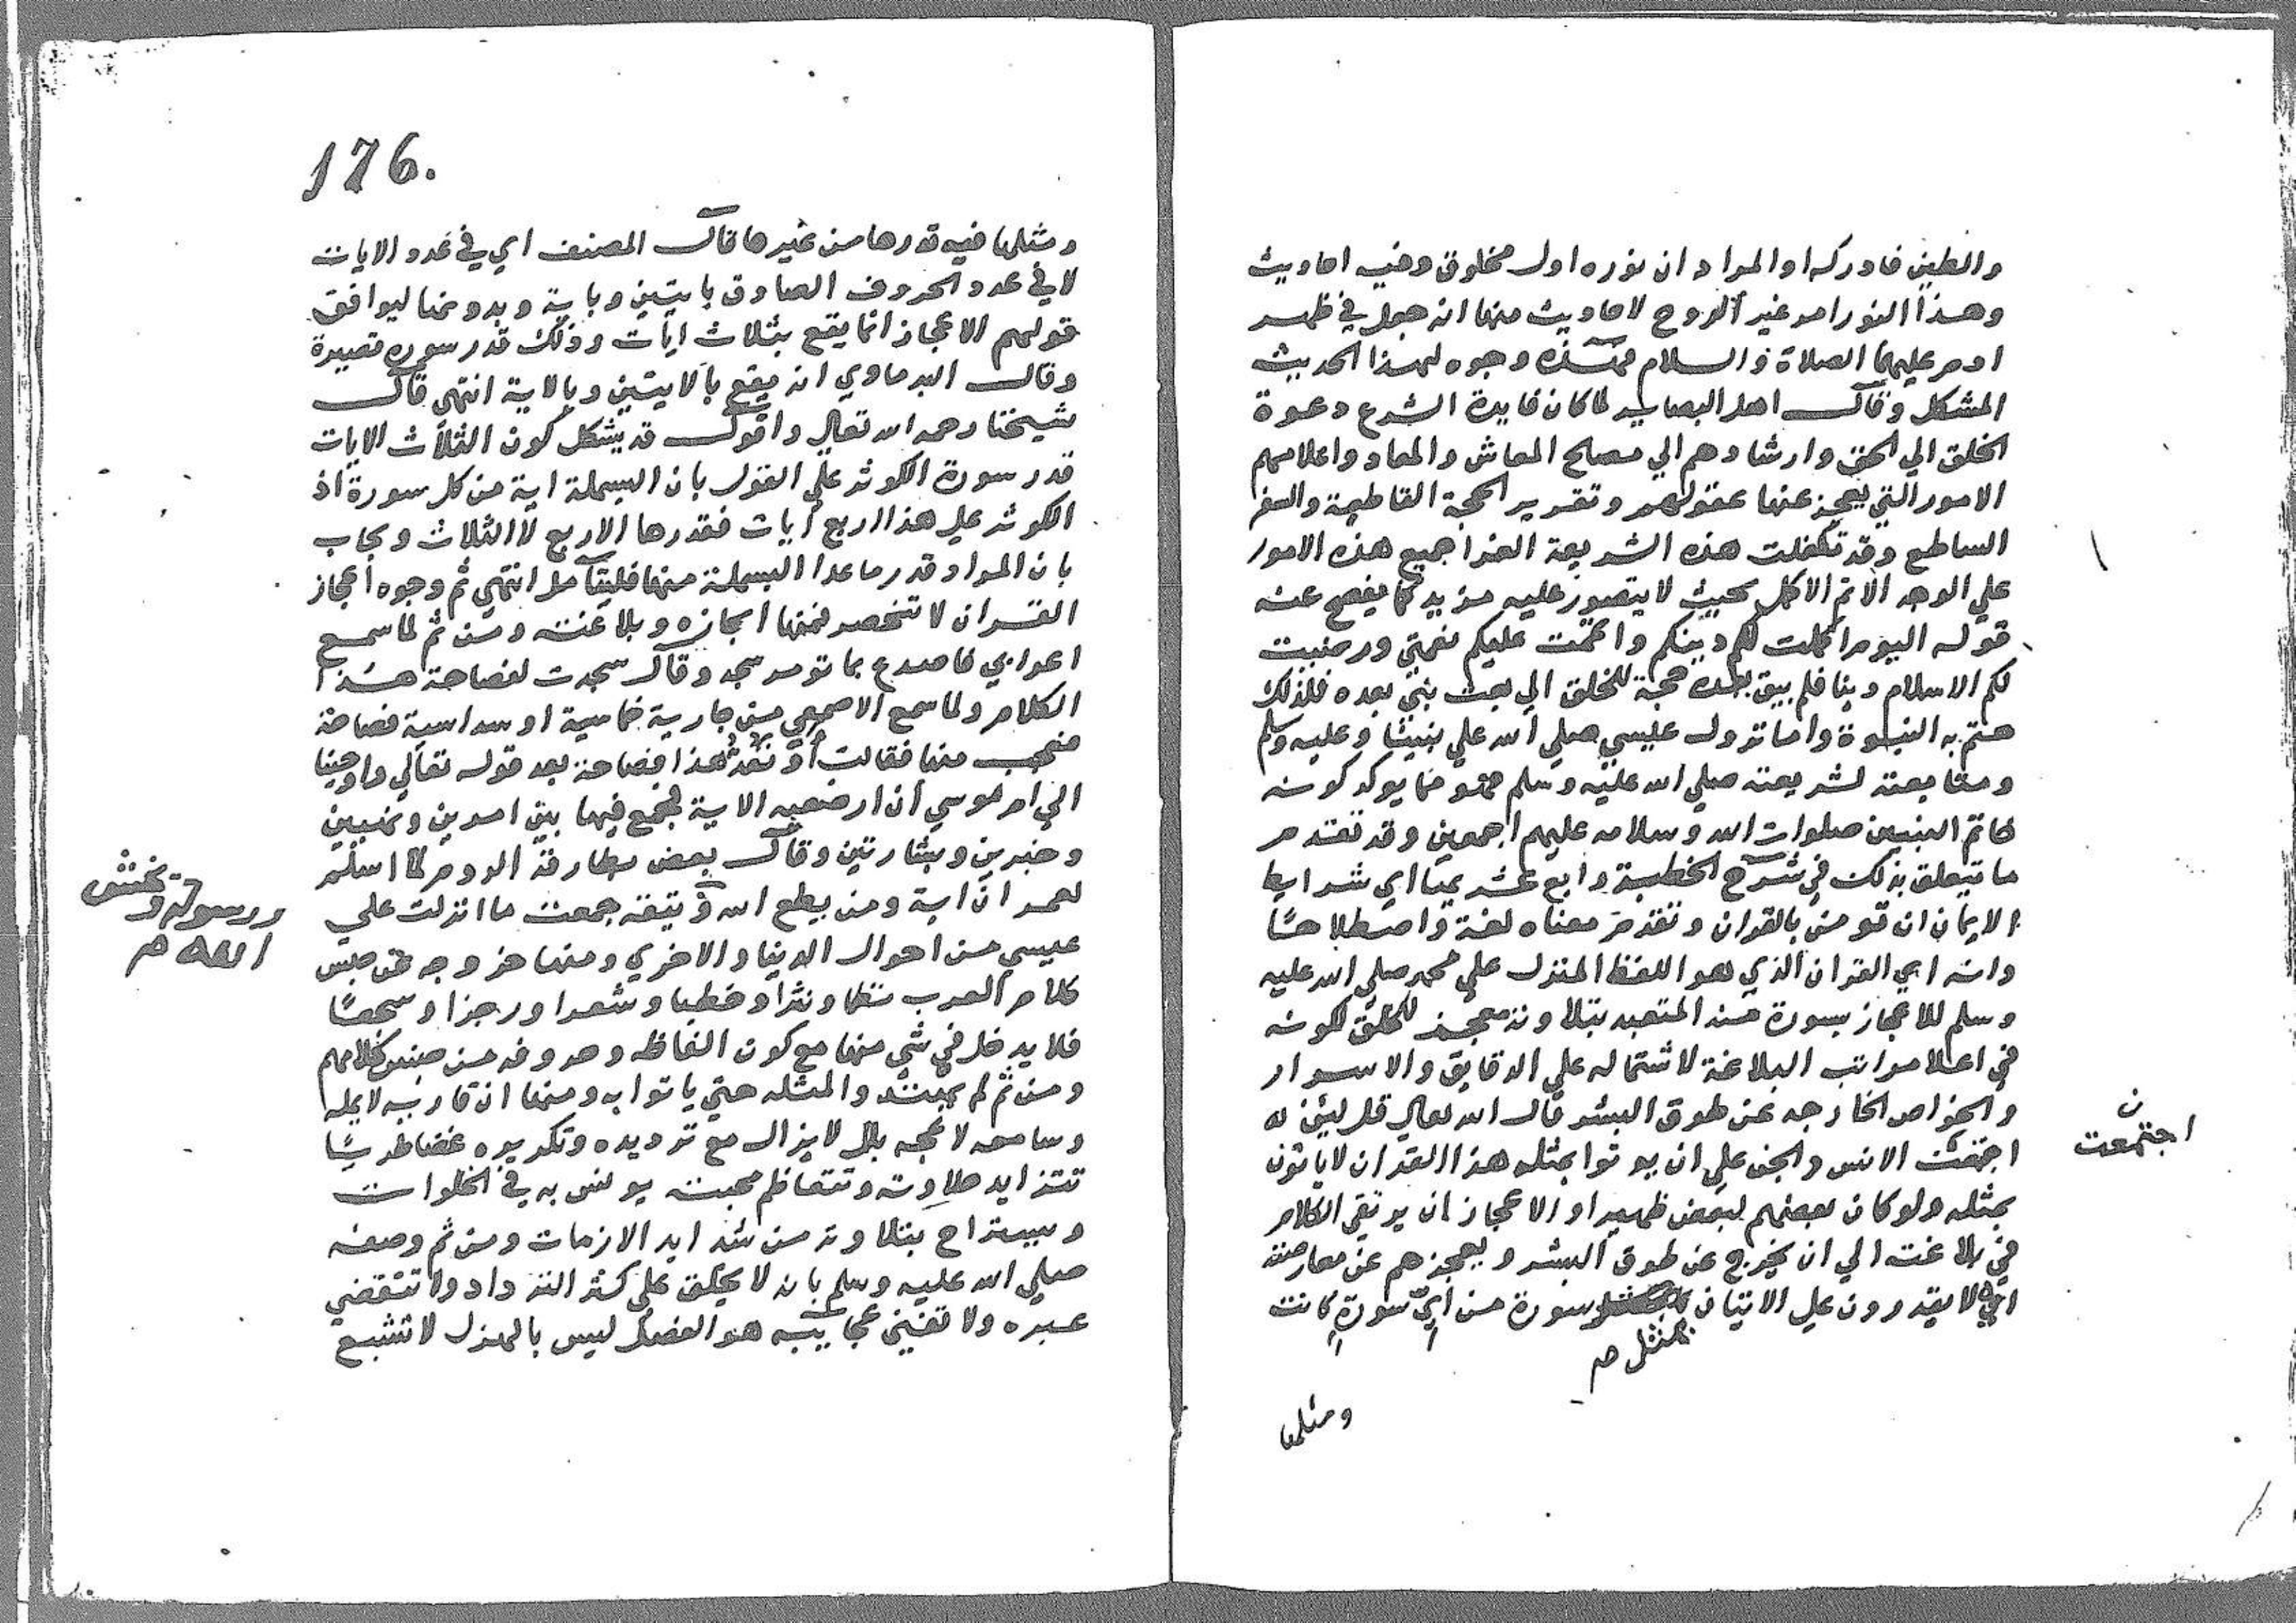 والطين فادركه او المراد ان نوره اول مخلوق وفيه احاديث
وهذا النور امر غير الروح لاحاديث منها انه جعل في ظهر
ادم عليهما الصلاة والسلام فهذه وجوه لهذا الحديث
المشكل وقال اهل البصاير لما كان فايدة الشرع دعوة
الخلق الي الحق وارشادهم الي مصلح المعاش والمعاد واعلامهم
الامور التي يعجز عنها عقولهم وتقرير الحجة القاطعة
الساطع وقد تكفلت هذه الشريعة الغرا جميع هذه الامور
علي الوجه الاتم الاكمل بحيث لا يتصور عليه مزيد كما يفصح عنه
قوله اليوم اكملت لكم دينكم واتممت عليكم نعمتي ورضيت
لكم الاسلام دينا فلم يبق بعده حجة للخلق الي بعث نبي بعده فلذلك
ختم به النبوة واما نزول عيسي صلي الله علي نبينا وعليه وسلم
ومتابعته لشريعته صلي الله عليه وسلم فهو مما يوكد كونه
خاتم النبيين صلوات الله وسلامه عليهم اجمعين وقد تقدم
ما يتعلق بذلك في شرح الخطبة رابع عشريها اي شرايط
الايمان ان تومن بالقران وتقدم معناه لغة واصطلاحا
وانه اي القران الذي هو اللفظ المنزل علي محمد صلي الله عليه
وسلم للاعجاز بسورة منه المتعبد بتلاوته معجز للخلق لكونه
في اعلا مراتب البلاغة لاشتماله علي الدقايق والاسرار
والخواص الخارجه عن طوق البشر قال الله تعالي قل لين
اجتمعت الانس والجن علي ان يوتوا بمثل هذا القران لا ياتون
اجتمعت
بمثله ولو كان بعضهم لبعض ظهيرا والاعجاز ان يرتقي الكلام
في بلاغته الي ان يخرج عن طوق البشر ويعجزهم عن معارضته
لا يقدرون علي الاتيان سورة من اي سورة كانت
بمثل صح
ومثلها
176.
ومثلها فيه قدرها من غيرها قال المصنف اي في عدد الايات
لا في عدد الحروف الصادق بايتين وباية وبدونها ليوافق
قولهم الاعجاز انما يقع بثلاث ايات وذلك قدر سورة قصيرة
وقال البرماوي انه يقع بالايتين وبالاية انتهي قال
شيخنا رحمه الله تعالي واقول قد يشكل كون الثلاث الايات
قدر سورة الكوثر علي القول بان البسملة اية من كل سورة اذ
الكوثر علي هذا اربع ايات فقدرها الاربع لا الثلاث ويجاب
بان المراد قدر ما عدا البسملة منها فليتامل انتهي ثم وجوه اعجاز
القران لا تنحصر فمنها ايجازه وبلاغته ومن ثم لما سمع
اعرابي فاصدع بما تومر سجد وقال سجدت لفصاحة هذا
الكلام ولما سمع الاصمعي من جارية خماسية او سداسية فصاحة
فعجب منها فقالت او تعد هذا فصاحة بعد قوله تعالي واوحينا
الي ام موسي ان ارضعيه الاية فجمع فيها بين امرين ونهيين
وخبرين وبشارتين وقال بعض بطارقة الروم لما اسلم
لعمر ان اية ومن يطع الله ويتقه جمعت ما انزلت علي
ورسوله ويخش
الله صح
عيسي من احوال الدنيا والاخري ومنها خروجه عن جنس
كلام العرب نظما ونثرا وخطبا وشعرا ورجزا وسجعا
فلا يدخل في شي منها مع كون الفاظه وحروفه من جنس كلامهم
ومن ثم لم يهتدوا لمثله حتي ياتوا به ومنها ان قاريه لا يمله
وسامعه لا يمجه بل لا يزال مع ترديده وتكريره غضا طريا
تتزايد حلاوته وتتعاظم محبته يونس به في الخلوات
ويستراح بتلاوته من شدايد الازمات ومن ثم وصفه
صلي الله عليه وسلم بانه لا يخلق علي كثرة الترداد ولا تنقضي
عبره ولا تفني عجايبه هو الفصل ليس بالهزل لا تشبع